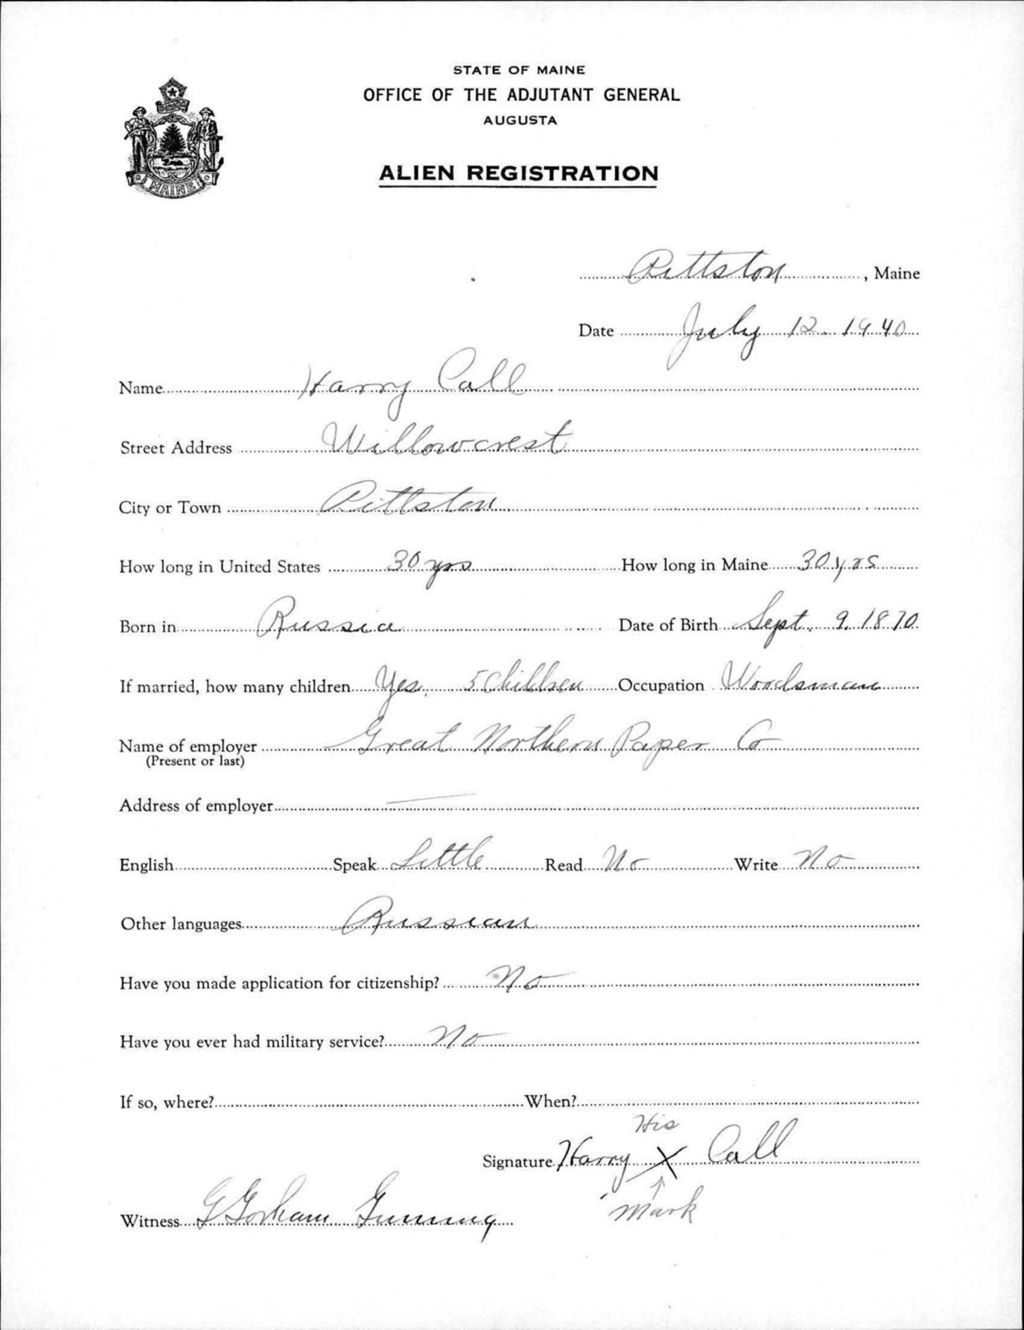 STATE OF MAINE
OFFICE OF THE ADJUTANT GENERAL
AUGUSTA
ALIEN REGISTRATION
MAINE
Pittston, Maine
Date July 12. 1940
Name Harry Call
Street Address Willowcrest
City or Town Pittston
How long in United States 30 yrs How long in Maine 30 yrs
Born in Russia Date of Birth Sept. 9. 1870
If married, how many children Yes. 5 Children Occupation Woodsman
Name of employer Great Northern Paper Co
(Present or last)
Address of employer —
English Speak Little Read No Write No
Other languages Russian
Have you made application for citizenship? No
Have you ever had military service? No
If so, where? When?
His
Signature Harry X Call
Mark
Witness G Gorham Gunning